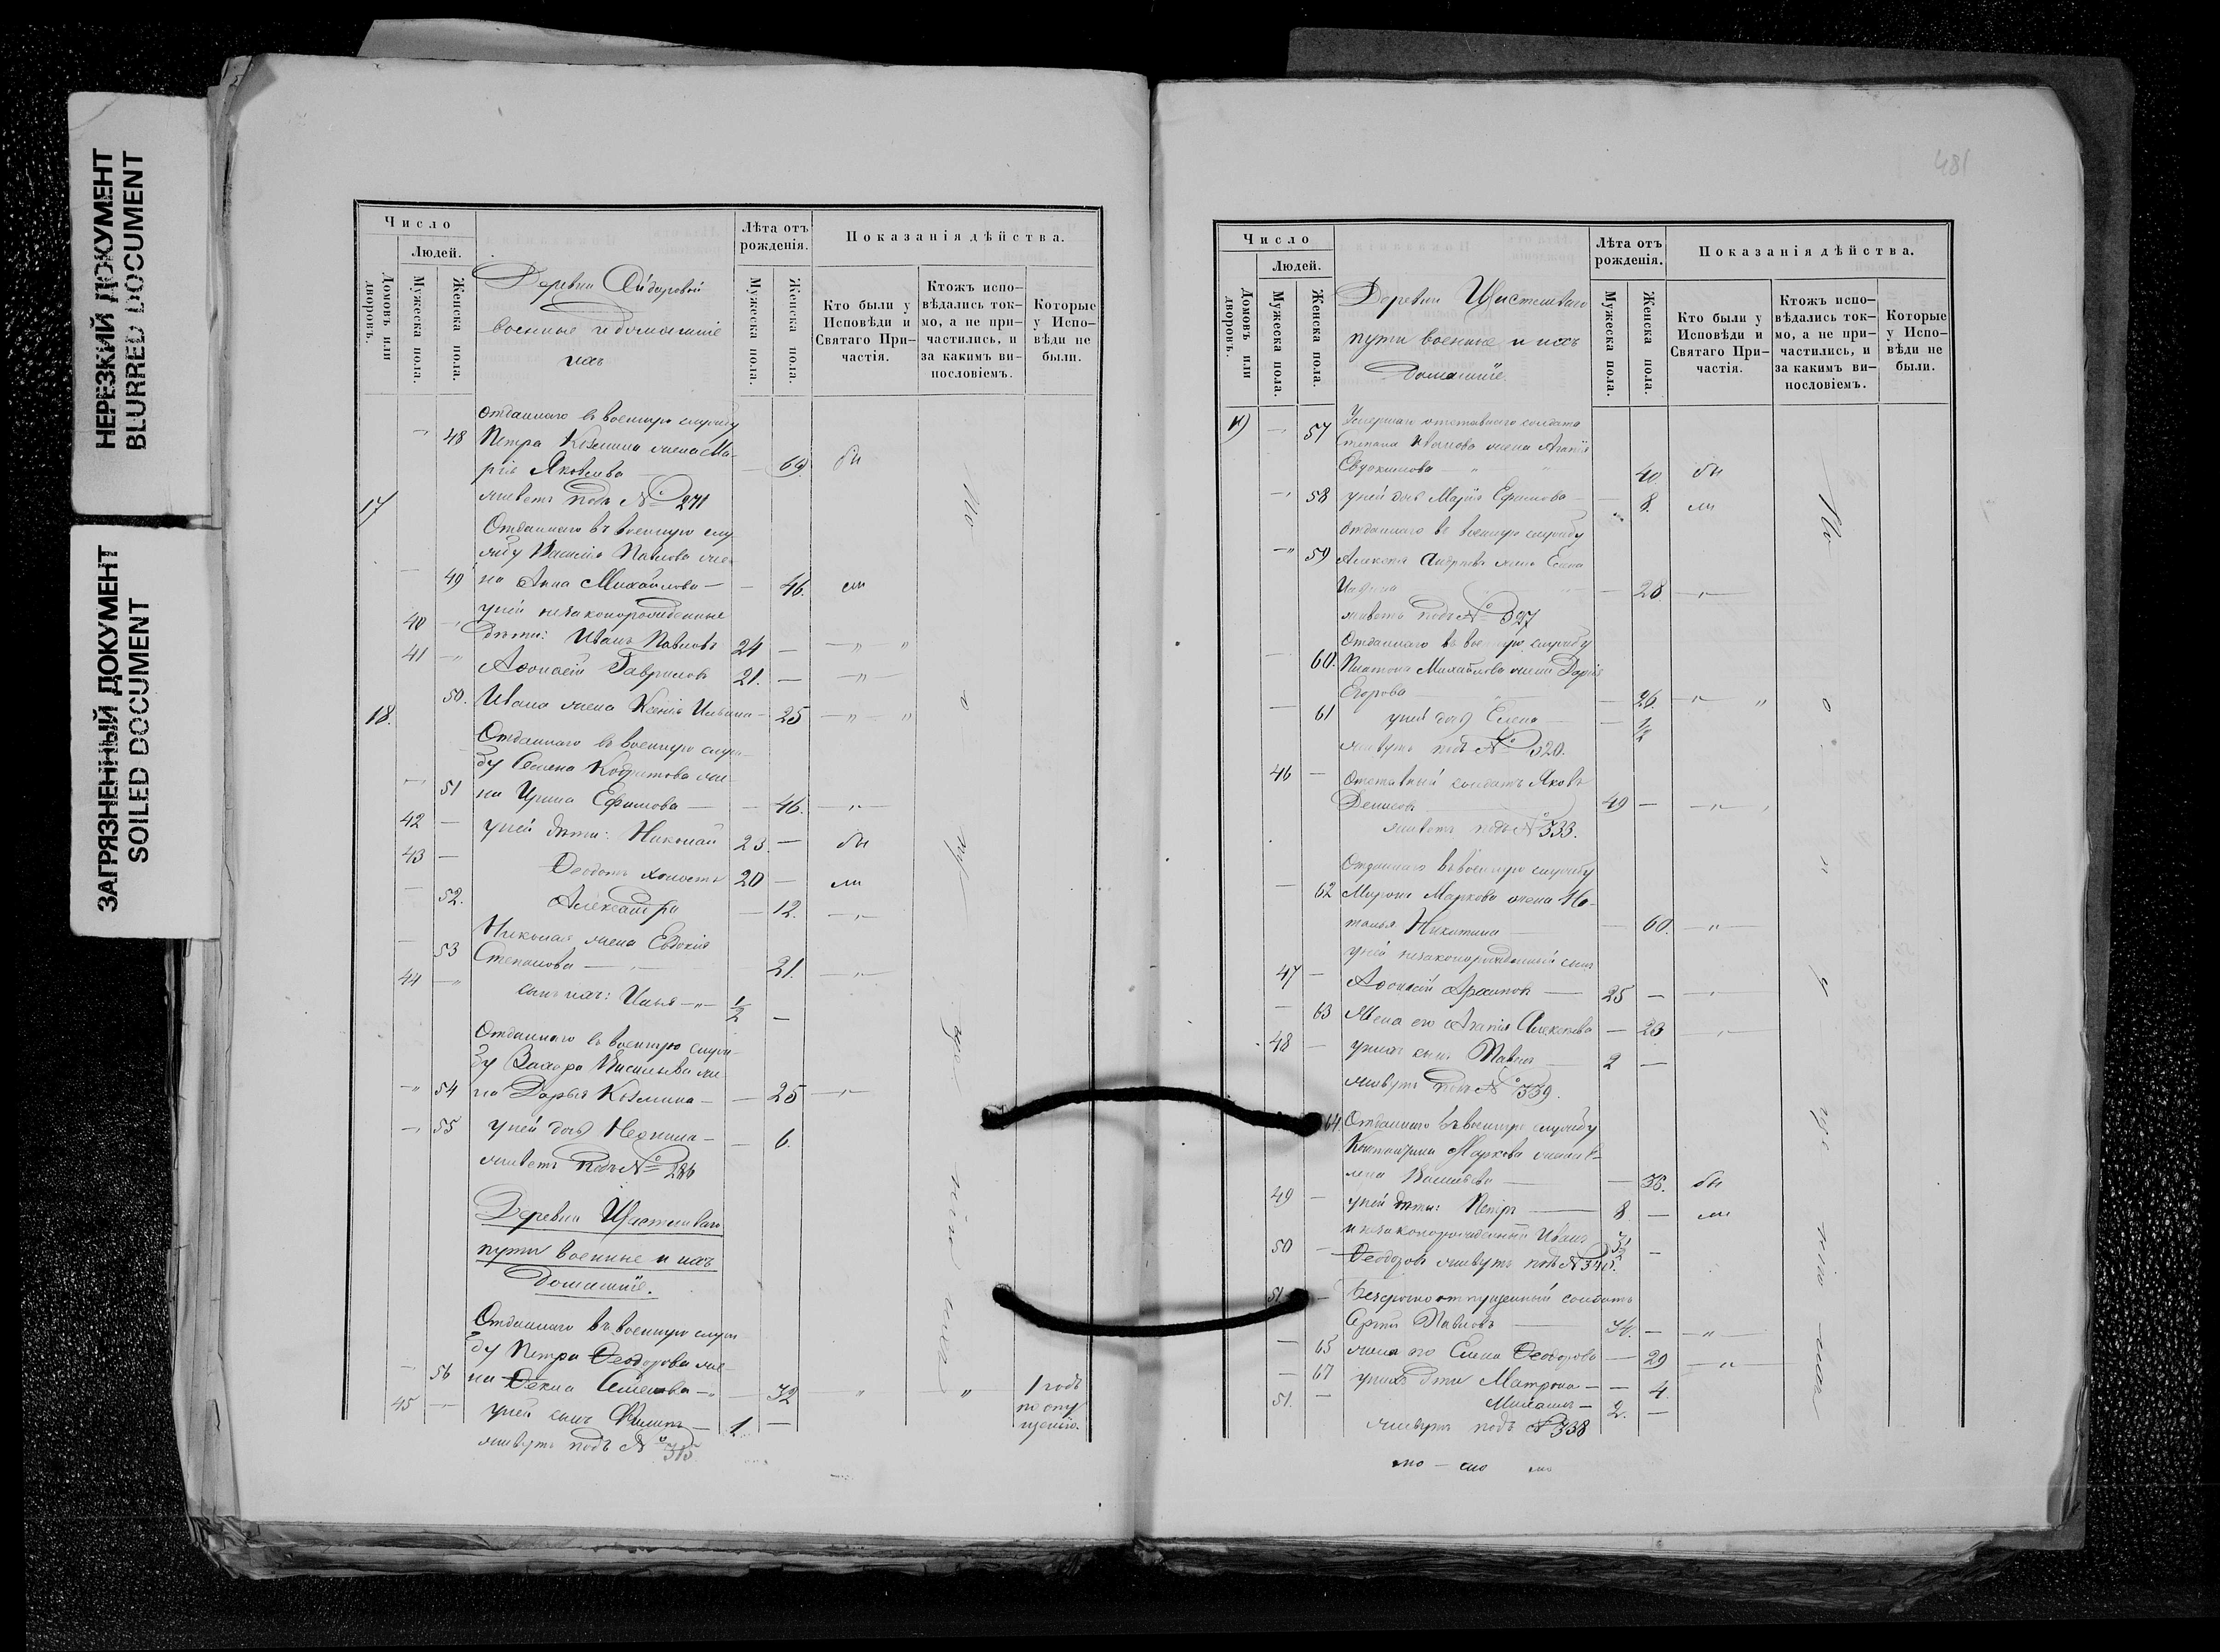 НЕРЕЗКИЙ ДОКУМЕНТ
BLURRED DOCUMENT
ЗАГРЯЗНЕННЫЙ ДОКУМЕНТ
SOILED DOCUMENT
Число
Людей.
Домовъ или дворовъ.
Мужеска пола.
Женска пола.
Деревни
военные и домашніе
ихъ
Лѣта отъ рожденія.
Мужеска пола.
Женска пола.
Показанія дѣйства.
Кто были у Исповѣди и Святаго При-частія.
Ктожъ испо-вѣдались ток-мо, а не при-частились, и за какимъ ви-нословіемъ.
Которые у Испо-вѣди не были.
Отданнаго въ военную службу
48 Петра Козмина жена Ма-
рія Яковлева 69 бы
живетъ подъ № 271
17
Отданнаго въ военную слу
жбу Василія Павлова же
49 на Анна Михайлова — 46 ли
у ней незаконорожденные
40 дѣти: Иванъ Павловъ 24
41 Аѳонасій Гавриловъ 21.
50. Ивана жена Ксенія Ильина 25
18.
Отданнаго въ военную служ
бу Семена Кодратова же
51 на Ирина Ефимова — 46.
42 у ней дѣти: Николай 23 бы
43 Ѳеодотъ холостъ 20 ли
52. Александра 12.
Николая жена Евдокія
53 Степанова 21.
44 сынъ ихъ: Илья 1/2
Отданнаго въ военную служ
бу Захара Васильева же
54 на Дарья Козмина — 25
55 у ней дочь 6.
живетъ подъ № 286
Деревни Щастливаго
пути военные и ихъ
домашніе.
Отданнаго въ военную служ
бу Петра Ѳеодорова же
56 на Ѳекла 32 1 годъ
45 у ней сынъ Филипъ 1 по опу
щенію.
живутъ подъ № 315
481
Число
Людей.
Домовъ или дворовъ.
Мужеска пола.
Женска пола.
Деревни Щастливаго
пути военные и ихъ
домашніе.
Лѣта отъ рожденія.
Мужеска пола
Женска пола
Показанія дѣйства.
Кто были у Исповѣди и Святаго При-частія.
Ктожъ испо-вѣдались ток-мо, а не при-частились, и за какимъ ви-нословіемъ.
Которые у Испо-вѣди не были.
57 Умершаго отставнаго солдата
Степана Иванова жена Агапія
Евдокимова 40 бы
58 у ней дочь Марія Ефимова 8. ли
Отданнаго въ военную службу
59 Алексѣя Андреева жена Елена
28
живетъ подъ № 327
Отданнаго въ военную службу
60. Платона Михайлова жена Дарія
Егорова 26.
61 у ней дочь Елена 1/2
живутъ подъ № 320.
46 Отставный солдатъ Яковъ
Денисовъ 49
живетъ подъ № 333.
Отданнаго въ военную службу
62 Мирона Маркова жена На-
талья Никитина 60.
у ней незаконорожденный сынъ
47 Аѳонасій Архиповъ 25
63 Жена его Агапія Алексѣева 23
48 у нихъ сынъ Павелъ 2
живутъ подъ № 339.
64 Отданнаго въ военную службу
Константина Маркова жена Е-
лена Васильева 36. бы
49 у ней дѣти: Петръ 8 ли
и незаконорожденный Иванъ 3 1/2
50 Ѳеодоровъ живутъ подъ №
51 Безсрочно отпущенный солдатъ
Сергѣй Павловъ 34.
65 жена его Елена Ѳеодорова 29
67 у нихъ дѣти Матрона 4
51. Михаилъ 2.
живутъ подъ № 338